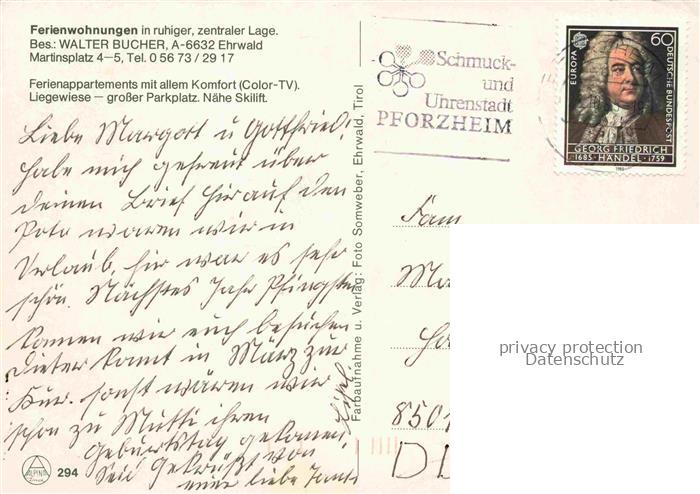 Ferienwohnungen in ruhiger, zentraler Lage.
Bes.: WALTER BUCHER, A-6632 Ehrwald
Martinsplatz 4–5, Tel. 0 56 73 / 29 17
Ferienappartements mit allem Komfort (Color-TV).
Liegewiese – großer Parkplatz. Nähe Skilift.
Liebe Margort u Gottfried!
habe mich gefreut über
deinen Brief hir auf den
Foto waren wir in
Urlaub, hir war es sehr
schön. Nächstes Jahr Pfingsten
kommen wir euch besuchen
Dieter kommt in März zur
Kur. sonst wären wir
schon zu Mutti ihren
Geburtstag gekommen.
Seid Gekrüßt von
liebe
294
ALPINA
Farbaufnahme u. Verlag: Foto Somweber, Ehrwald, Tirol
Schmuck-
und
Uhrenstadt
PFORZHEIM
60
EUROPA
DEUTSCHE BUNDESPOST
GEORG FRIEDRICH
1685 · HÄNDEL · 1759
Fam
Ma
850
privacy protection
Datenschutz